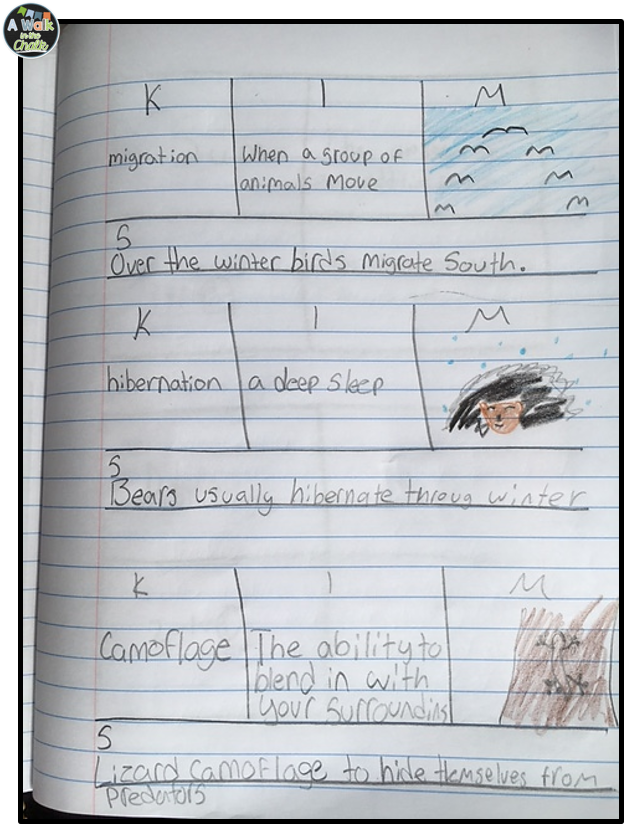 A Walk
in the
Chalk
K I M
migration When a group of
animals move
S
Over the winter birds migrate South.
K I M
hibernation a deep sleep
S
Bears usually hibernate throug winter
K I M
Camoflage The ability to
blend in with
your surroundins
S
Lizard camoflage to hide themselves from
predators